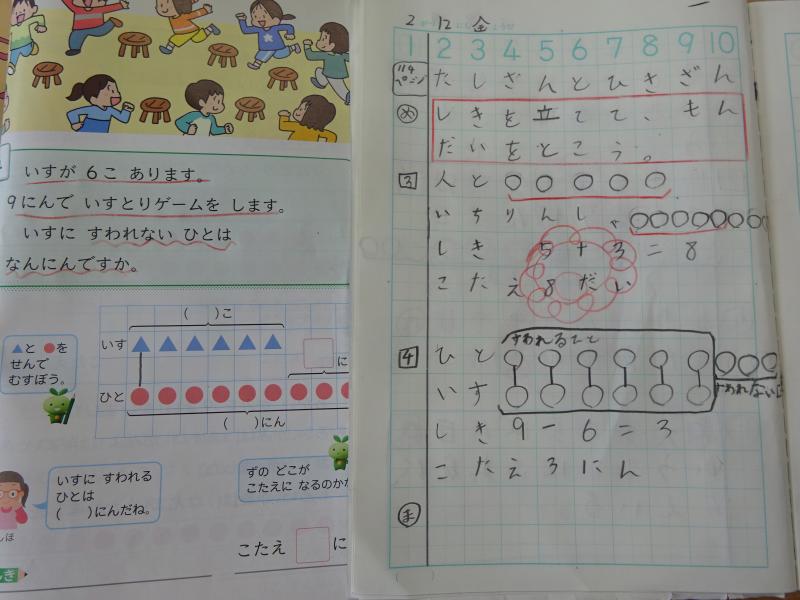 いすが 6こ あります。
9にんで いすとりゲームを します。
いすに すわれない ひとは
なんにんですか。
▲と●を
せんで
むすぼう。
( )こ
いす
に
ひと
( )にん
いすに すわれる
ひとは
( )にんだね。
ずの どこが
こたえに なるのか
こたえ □に
2 12 金
1 2 3 4 5 6 7 8 9 10
114ページ たしざんとひきざん
め しきを立てて、もん
だいをとこう。
3 人と○○○○○
いちりんしゃ○○○○○○○○
しき 5+3=8
こたえ 8だい
4 すわれるひと
ひと
いす すわれない
しき 9-6=3
こたえ3にん
ま